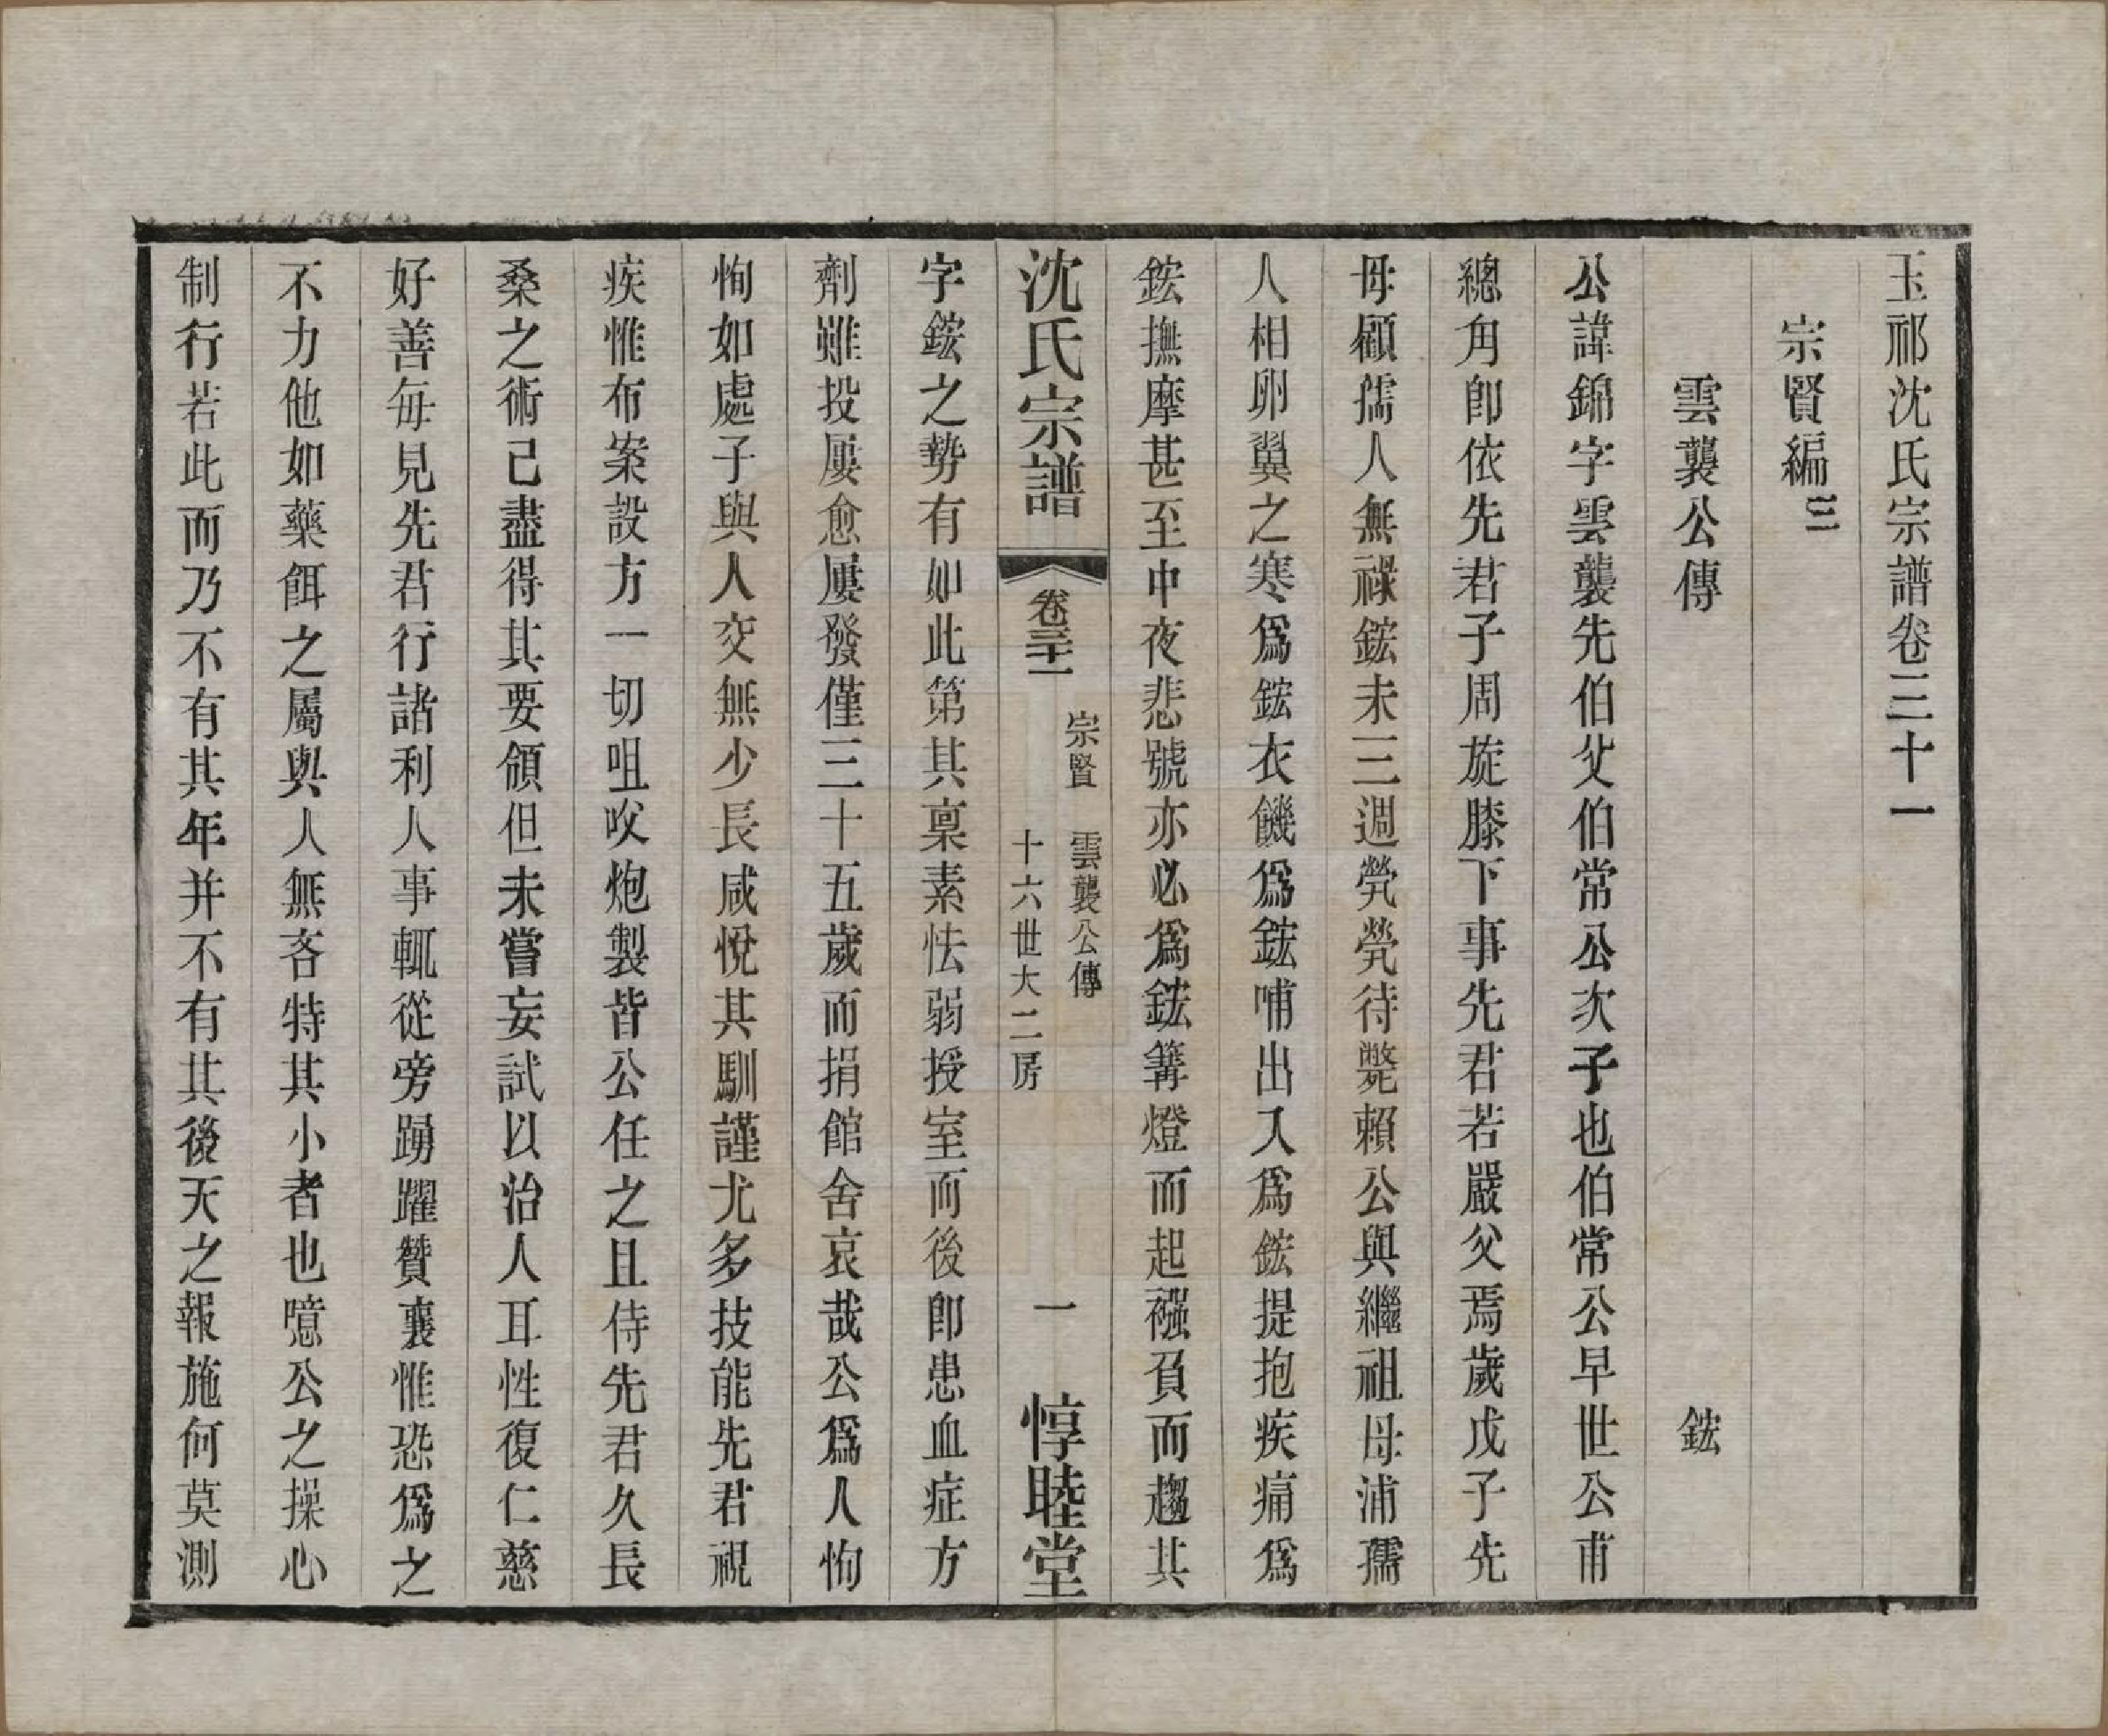 玉祁沈氏宗譜卷三十一
宗賢編三
雲襲公傳 鋐
公諱錦字雲襲先伯父伯常公次子也伯常公早世公甫
總角卽依先君子周旋膝下事先君若嚴父焉歲戊子先
母顧孺人無祿鋐未三週煢煢待斃賴公與繼祖母浦孺
人相卵翼之寒爲鋐衣饑爲鋐哺出入爲鋐提抱疾痛爲
鋐撫摩甚至中夜悲號亦必爲鋐篝燈而起襁負而趨其
沈氏宗譜 卷三十一 宗賢 雲襲公傳 十六世大二房 一 惇睦堂
字鋐之勢有如此第其稟素怯弱授室而後卽患血症方
劑雖投屢愈屢發僅三十五歲而捐館舍哀哉公爲人恂
恂如處子與人交無少長咸悅其馴謹尤多技能先君視
疾惟布案設方一切咀㕮炮製皆公任之且侍先君久長
桑之術已盡得其要領但未嘗妄試以治人耳性復仁慈
好善每見先君行諸利人事輒從旁踴躍贊襄惟恐爲之
不力他如藥餌之屬與人無吝特其小者也噫公之操心
制行若此而乃不有其年并不有其後天之報施何莫測